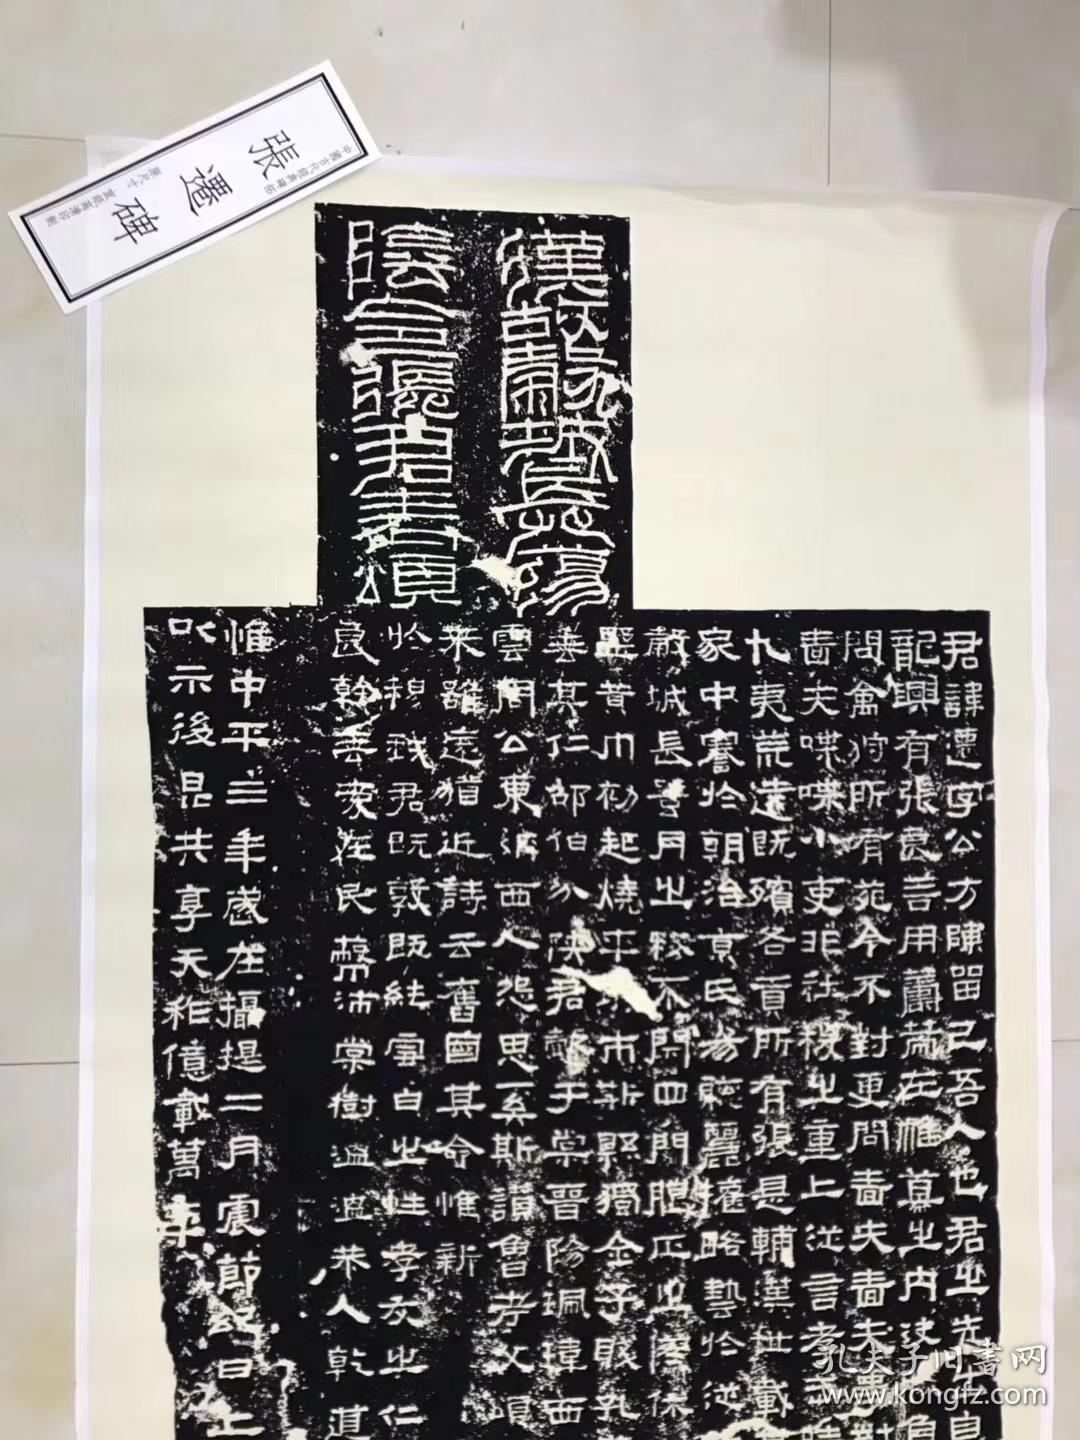 中國古代經典碑拓
張遷碑
原尺寸 宣紙高清印制
漢故穀城長蕩
陰令張君表頌
君諱遷字公方陳留己吾人也君之先出自
龍興有張良善用籌策在帷幕之內決
問禽狩所有苑令不對更問嗇夫嗇夫事對
嗇夫喋喋小吏非社稷之重上從言孝武時
九夷荒遠既殯各貢所有張是輔漢世載
家中謇於朝治京氏易聰麗權略藝於從
穀城長蠶月之務不閉四門臘正之僚休
聖黃巾初起燒平城市斯縣獨全子賤孔
善其仁邵伯分陝君懿于棠晉陽珮瑋西
雲周公東征西人怨思奚斯讚魯考父頌
來雖遠猶近詩云舊國其命惟新
於穆我君既敦既純雪白之性孝友之仁
良幹善愛在民蔽沛棠樹溫溫恭人乾道
惟中平三年歲在攝提二月震節紀日上
以示後昆共享天祚億載萬年
孔夫子旧書网
www.kongfz.com